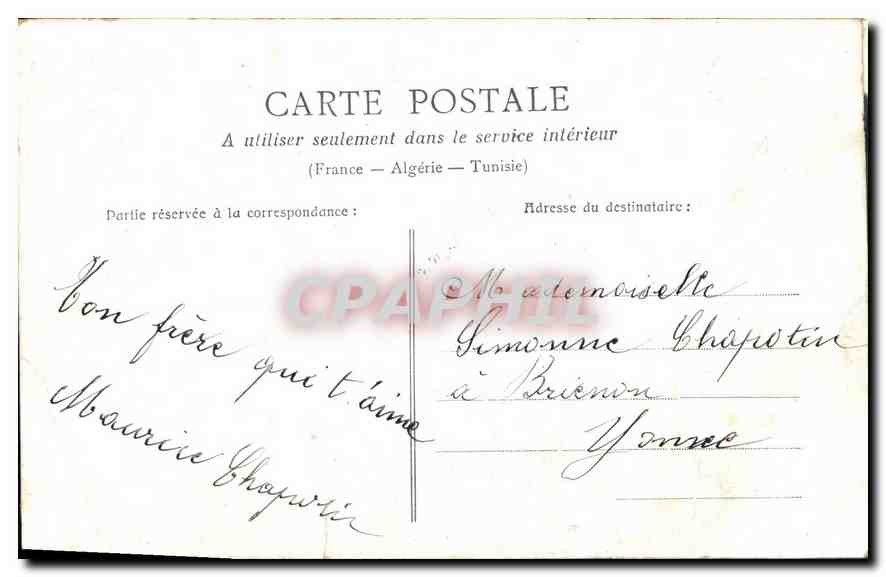 CARTE POSTALE
A utiliser seulement dans le service intérieur
(France — Algérie — Tunisie)
Partie réservée à la correspondance :
Adresse du destinataire :
Ton frère qui t'aime
Maurice Chapotin
CPAPHIL
Mademoiselle
Simonne Chapotin
à Brienon
Yonne